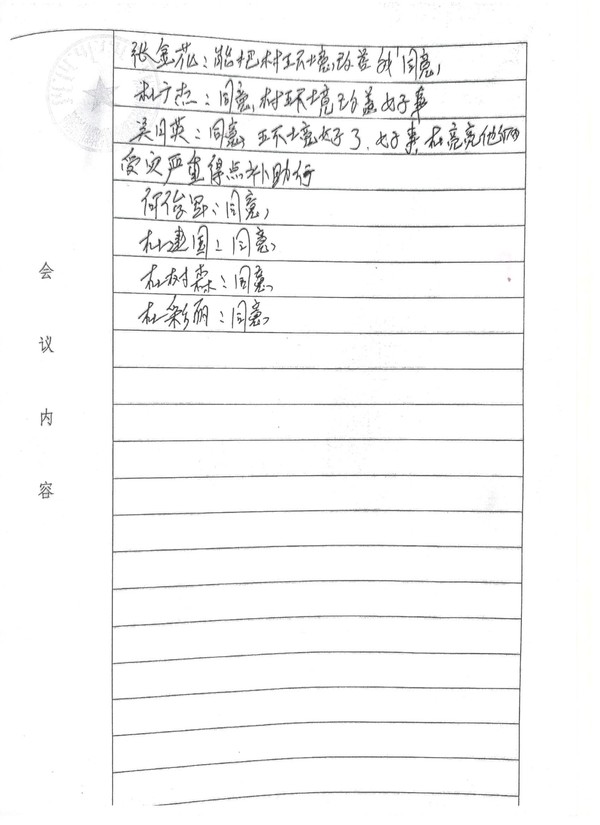 张金花：能把村环境改善我同意，
杜广杰：同意，村环境改善好事
吴月英：同意，环境好了，好事，杜亮亮他们
受灾严重得点补助行
同意，
杜建国：同意，
杜树森：同意，
杜彩丽：同意，
会
议
内
容